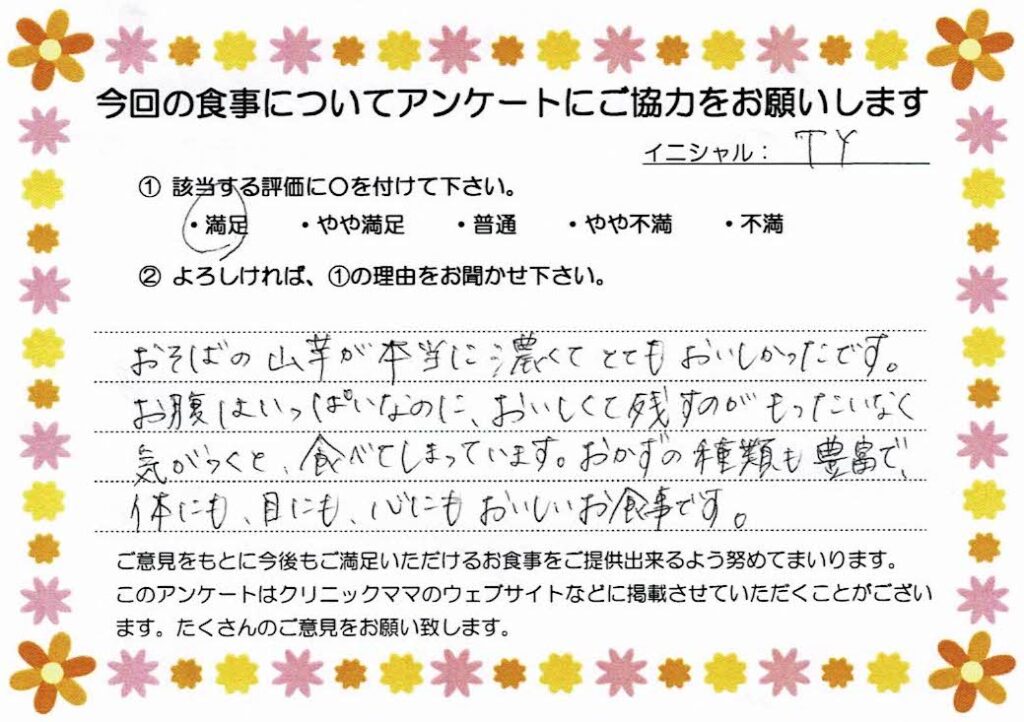 今回の食事についてアンケートにご協力をお願いします
イニシャル： TY
① 該当する評価に〇を付けて下さい。
・満足 ・やや満足 ・普通 ・やや不満 ・不満
② よろしければ、①の理由をお聞かせ下さい。
おそばの山芋が本当に濃くてとてもおいしかったです。
お腹はいっぱいなのに、おいしくて残すのがもったいなく
気がつくと、食べてしまっています。おかずの種類も豊富で、
体にも、目にも、心にもおいしいお食事です。
ご意見をもとに今後もご満足いただけるお食事をご提供出来るよう努めてまいります。
このアンケートはクリニックママのウェブサイトなどに掲載させていただくことがござい
ます。たくさんのご意見をお願い致します。